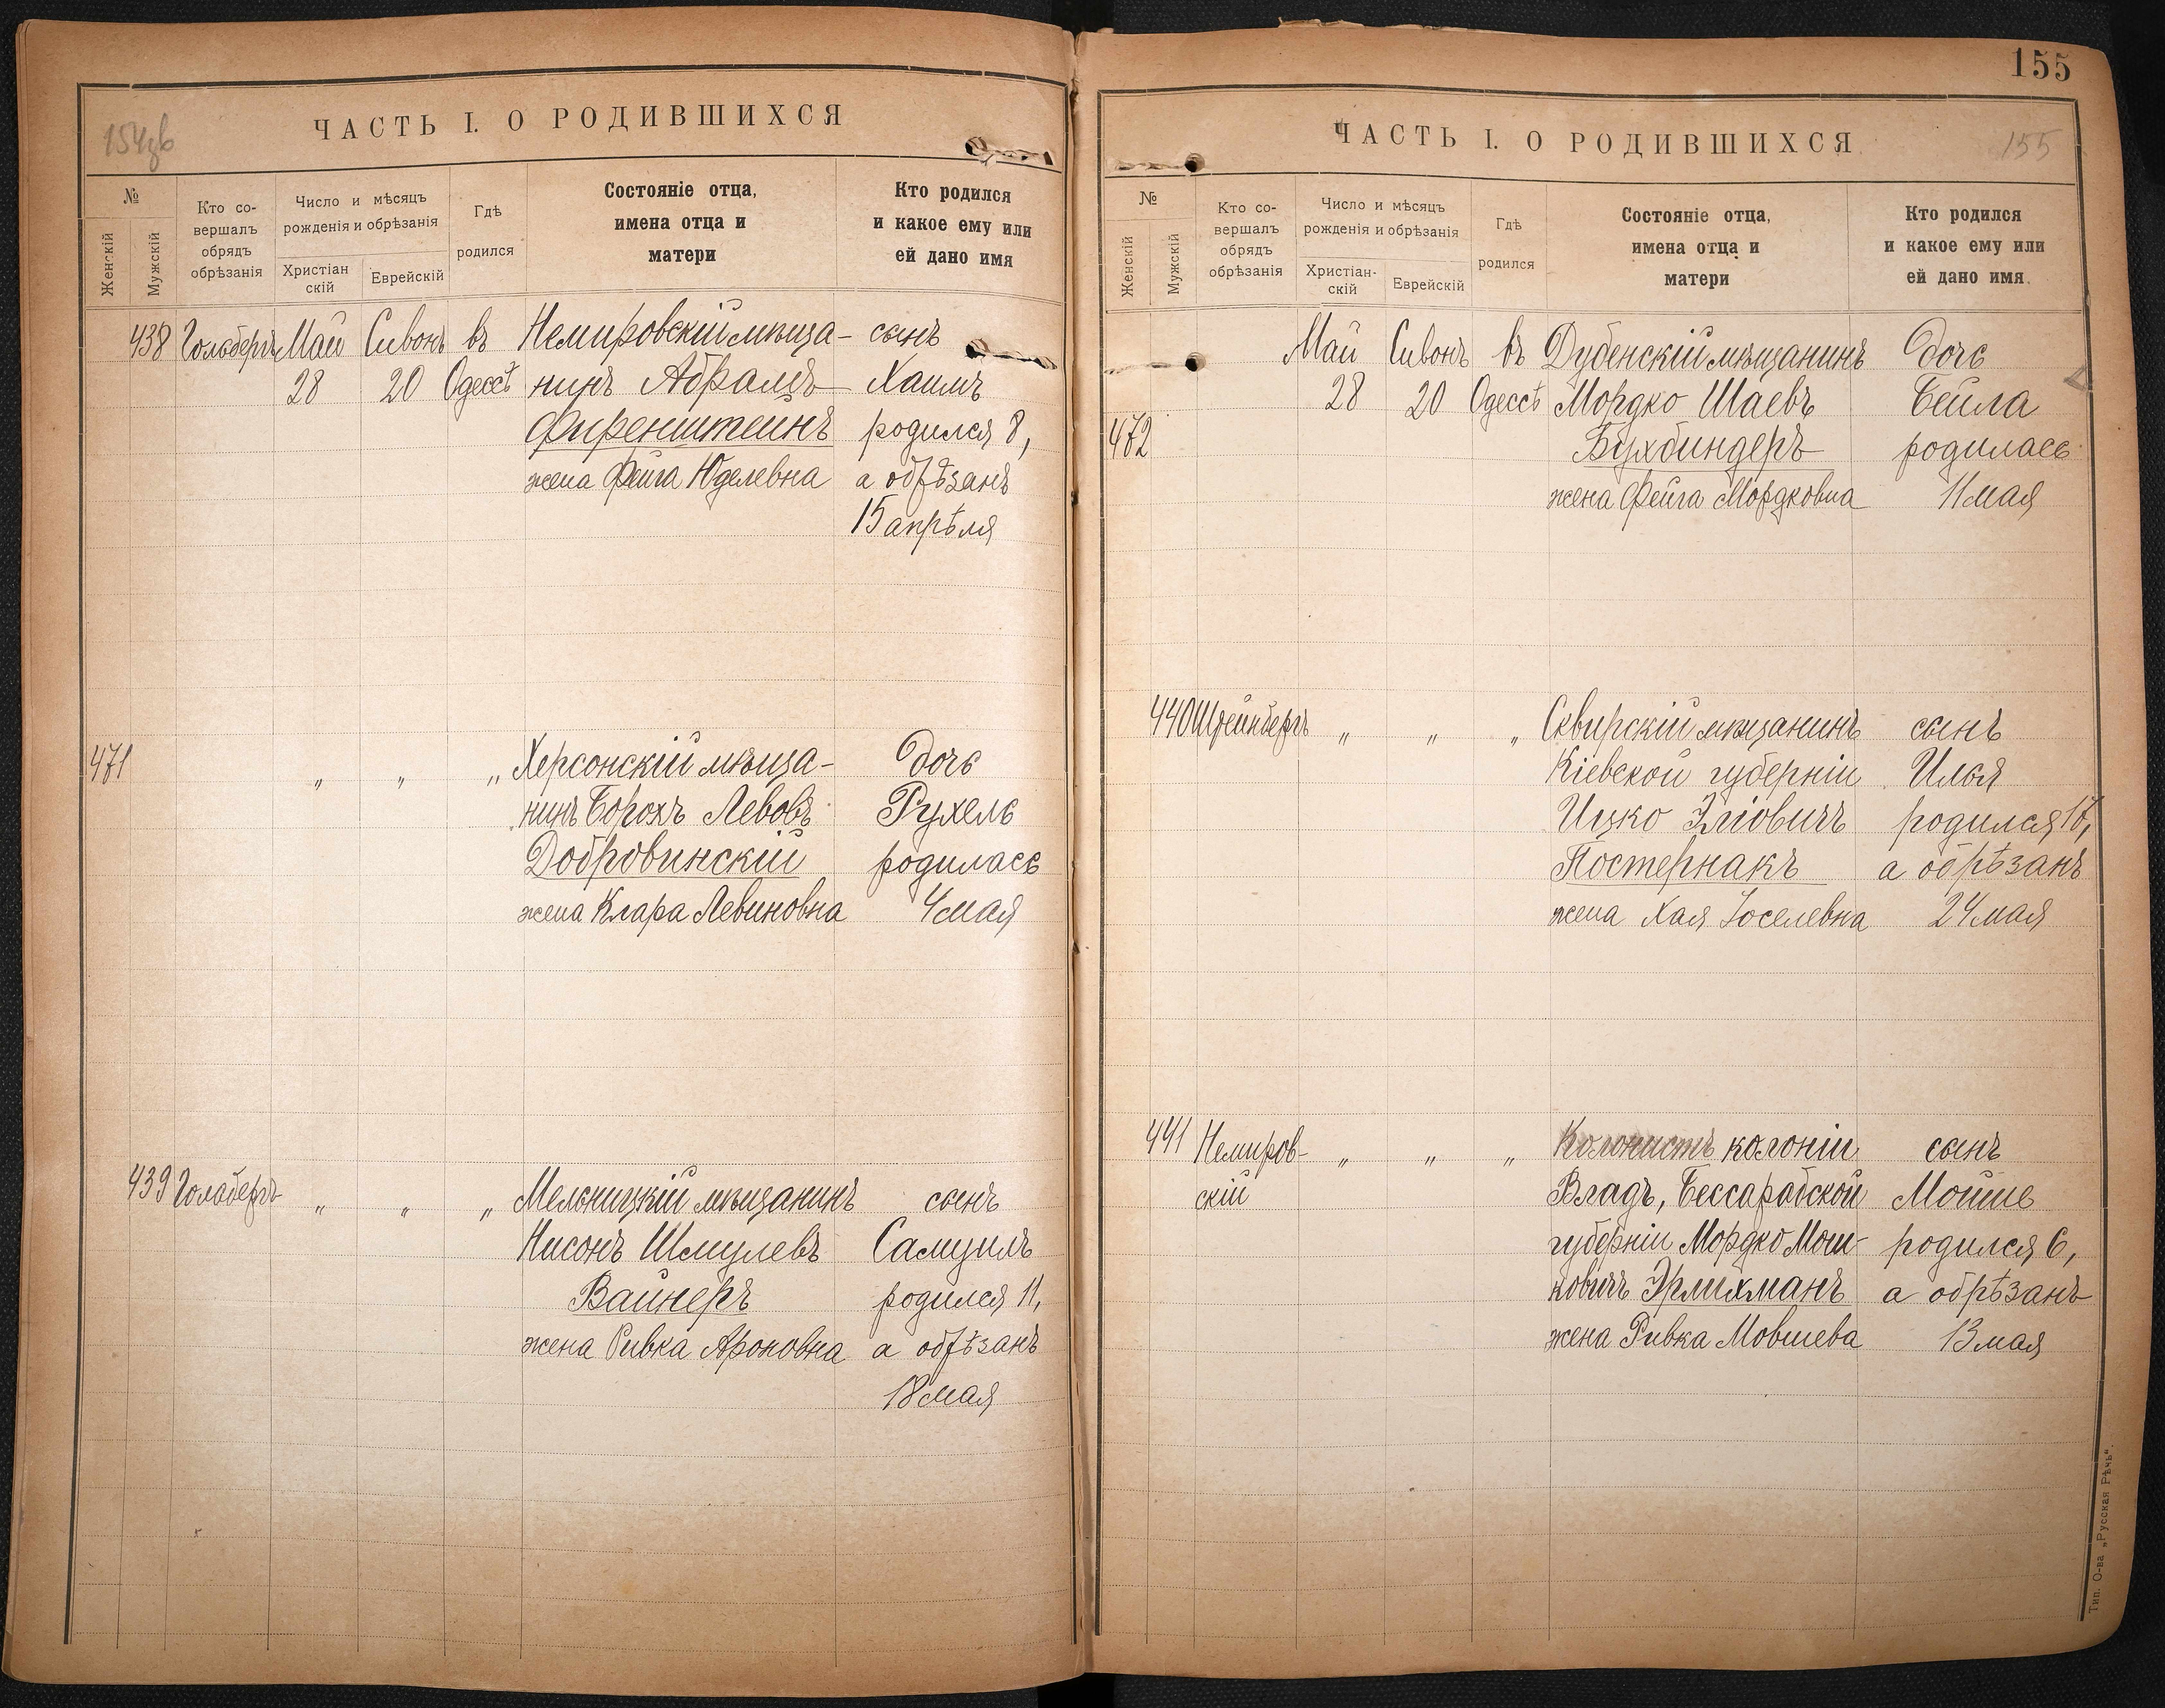 154зв
ЧАСТЬ I. О РОДИВШИХСЯ
№
Женскій
Мужскій
Кто со-
вершалъ
обрядъ
обрѣзанія
Число и мѣсяцъ
рожденія и обрѣзанія
Христіан
скій
Еврейскій
Гдѣ
родился
Состояніе отца,
имена отца и
матери
Кто родился
и какое ему или
ей дано имя
438 Гольбергъ Май Сивонъ въ Немировскій мѣща- сынъ
28 20 Одессѣ нинъ Абрамъ Хаимъ
Фиренштейнъ родился 8,
жена Фейга Юделевна а обрѣзанъ
15 апрѣля
471 „ „ „ Херсонскій мѣща- дочь
нинъ Борохъ Левовъ Рухель
Добровинскій родилась
жена Клара Левиновна 4 мая
439 Гольбергъ „ „ „ Мельницкій мѣщанинъ сынъ
Нисонъ Шмулевъ Самуилъ
Вайнеръ родился 11,
жена Ривка Ароновна а обрѣзанъ
18 мая
155
ЧАСТЬ I. О РОДИВШИХСЯ
155
№
Женскій
Мужскій
Кто со-
вершалъ
обрядъ
обрѣзанія
Число и мѣсяцъ
рожденія и обрѣзанія
Христіан-
скій
Еврейскій
Гдѣ
родился
Состояніе отца,
имена отца и
матери
Кто родился
и какое ему или
ей дано имя.
Май Сивонъ въ Дубенскій мѣщанинъ дочь
28 20 Одессѣ Мордко Шаевъ Бейла
472 Бухбиндеръ родилась
жена Фейга Мордковна 11 мая
440 Штейнбергъ „ „ „ Сквирскій мѣщанинъ сынъ
Кіевской губерніи Илья
Ицко Эліовичъ родился 17,
Постернакъ а обрѣзанъ
жена Хая Іоселевна 24 мая
441 Немиров- „ „ „ Колонистъ колоніи сынъ
скій Владъ, Бессарабской Мойше
губерніи Мордко Мош- родился 6,
ковичъ Эрлихманъ а обрѣзанъ
жена Ривка Мовшева 13 мая
Тип. О-ва „Русская Рѣчь".